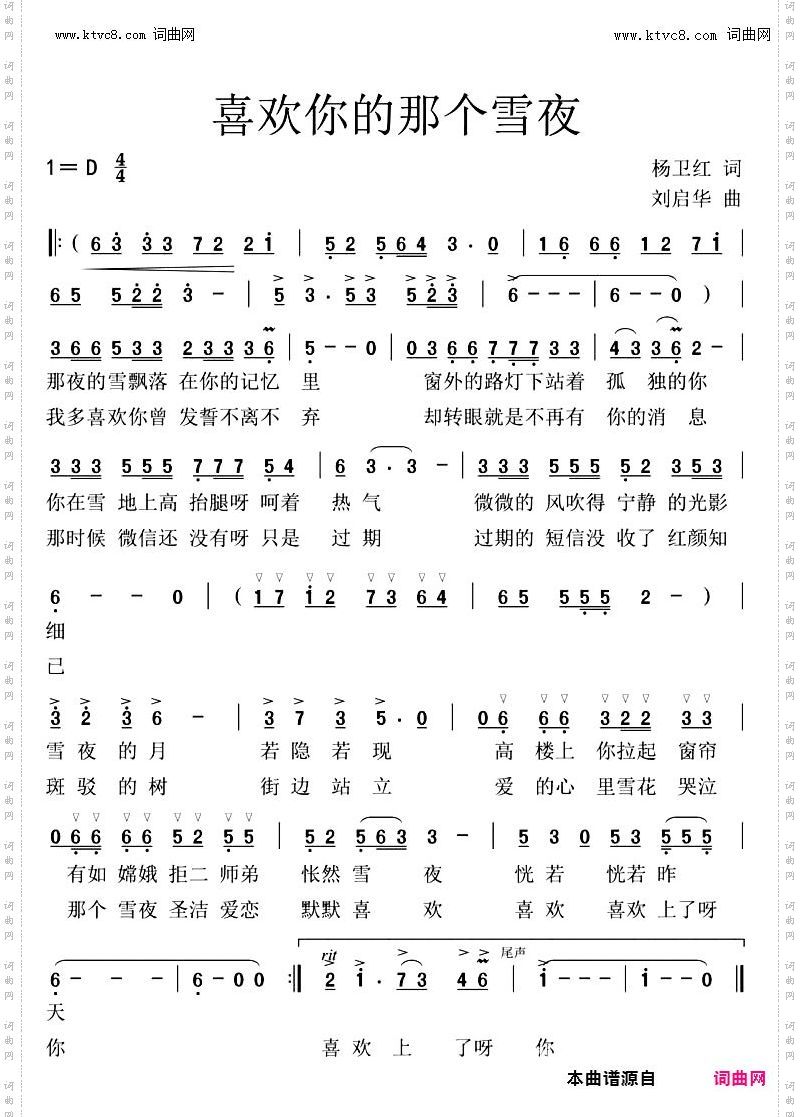 www.ktvc8.com 词曲网
www.ktvc8.com 词曲网
喜欢你的那个雪夜
1=D 4/4
杨卫红 词
刘启华 曲
‖: ( 6 3 3 3 7 2 2 1 | 5 2 5 6 4 3 · 0 | 1 6 6 6 1 2 7 1 |
6 5 5 2 2 3 - | 5 3 · 5 3 5 2 3 | 6 - - - | 6 - - 0 ) |
3 6 6 5 3 3 2 3 3 3 6 | 5 - - 0 | 0 3 6 6 7 7 7 3 3 | 4 3 3 6 2 - |
那夜的雪飘落 在你的记忆 里 窗外的路灯下站着 孤 独的你
我多喜欢你曾 发誓不离不 弃 却转眼就是不再有 你的消 息
3 3 3 5 5 5 7 7 7 5 4 | 6 3 · 3 - | 3 3 3 5 5 5 5 2 3 5 3 |
你在雪 地上高 抬腿呀 呵着 热 气 微微的 风吹得 宁静 的光影
那时候 微信还 没有呀 只是 过 期 过期的 短信没 收了 红颜知
6 - - 0 | ( 1 7 1 2 7 3 6 4 | 6 5 5 5 5 2 - ) |
细
己
3 2 3 6 - | 3 7 3 5 · 0 | 0 6 6 6 3 2 2 3 3 |
雪 夜 的 月 若 隐 若 现 高 楼上 你拉起 窗帘
斑 驳 的 树 街 边 站 立 爱 的心 里雪花 哭泣
0 6 6 6 6 5 2 5 5 | 5 2 5 6 3 3 - | 5 3 0 5 3 5 5 5 |
有如 嫦娥 拒二 师弟 怅然 雪 夜 恍 若 恍若 昨
那个 雪夜 圣洁 爱恋 默默 喜 欢 喜 欢 喜欢 上了呀
rit 尾声
6 - - - | 6 - 0 0 :‖ 2 1 · 7 3 4 6 | 1 - - - | 1 - - 0 ‖
天
你 喜 欢 上 了呀 你
本曲谱源自 词曲网